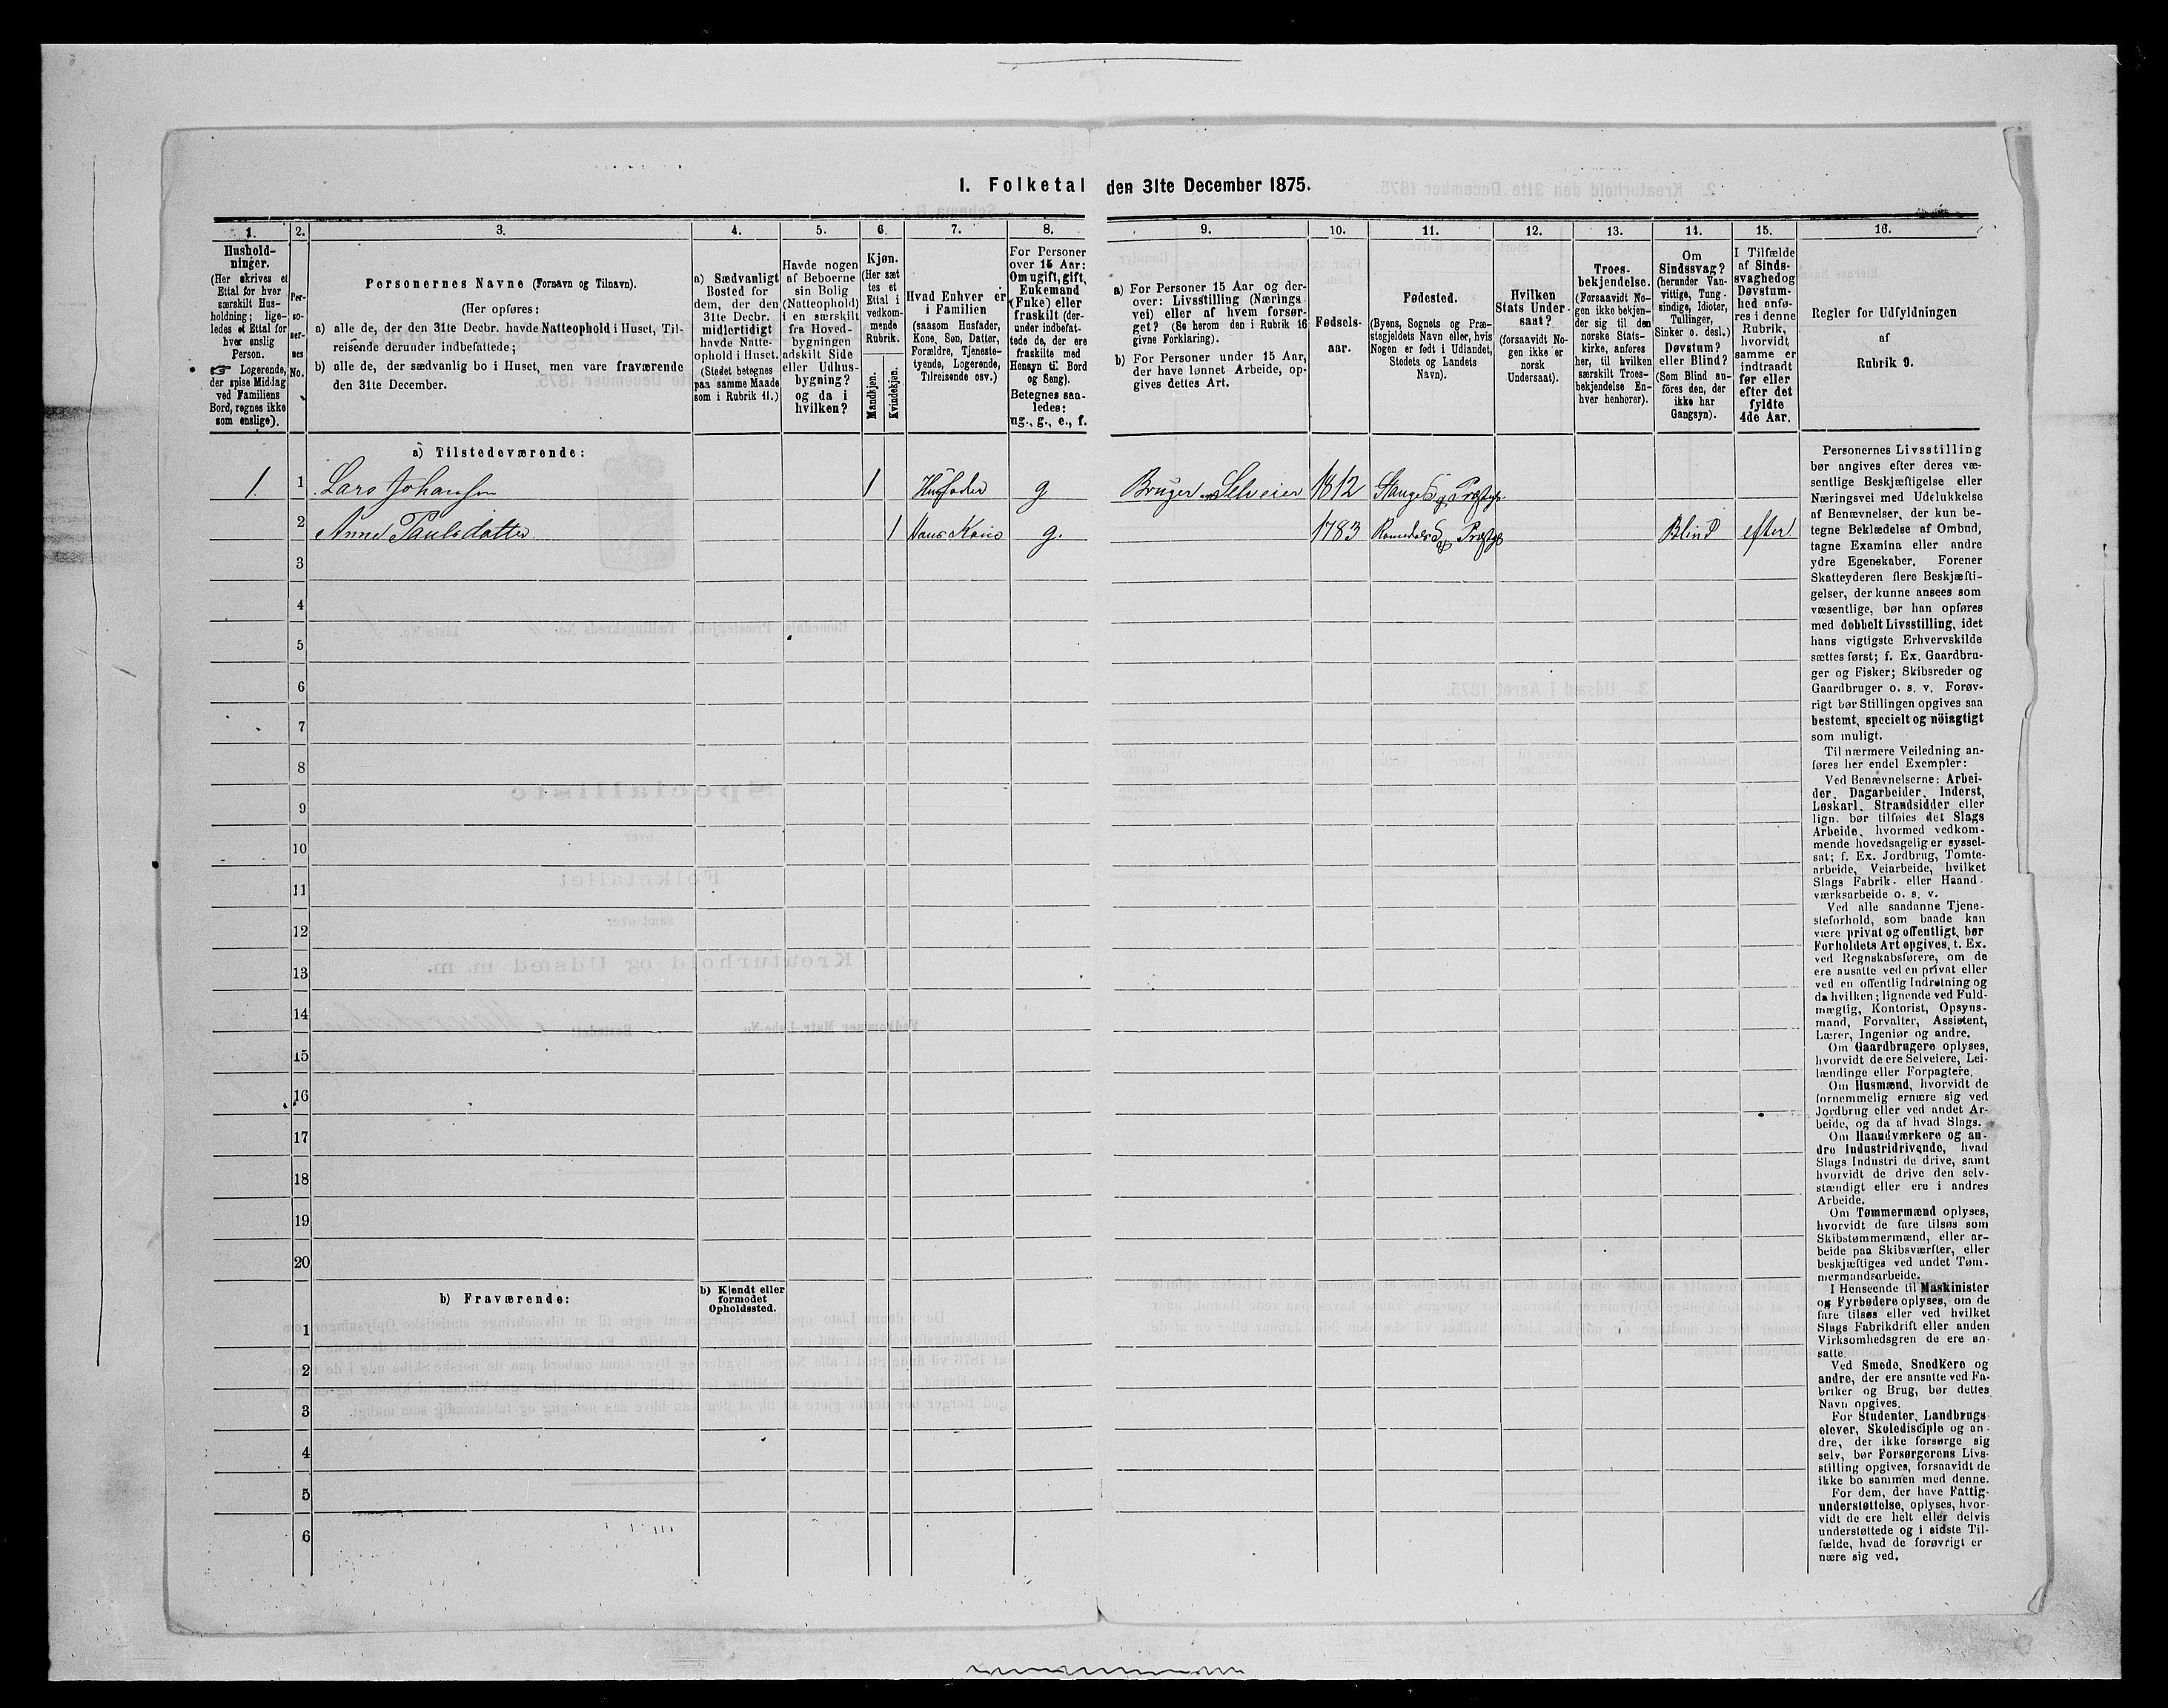 I. Folketal den 31te December 1875.
1.
Hushold-
ninger.
(Her skrives et
Ettal for hver
særskilt Hus-
holdning; lige-
ledes et Ettal for
hver enslig
Person.
☞ Logerende,
der spise Middag
ved Familiens
Bord, regnes ikke
som enslige).
2.
Per-
so-
ner-
nes
No.
3.
Personernes Navne (Fornavn og Tilnavn).
(Her opføres:
a) alle de, der den 31te Decbr. havde Natteophold i Huset, Til-
reisende derunder indbefattede;
b) alle de, der sædvanlig bo i Huset, men vare fraværende
den 31te December.
4.
a) Sædvanligt
Bosted for
dem, der den
31te Decbr.
midlertidigt
havde Natte-
ophold i Huset.
(Stedet betegnes
paa samme Maade
som i Rubrik 11.)
5.
Havde nogen
af Beboerne
sin Bolig
(Natteophold)
i en særskilt
fra Hoved-
bygningen
adskilt Side
eller Udhus-
bygning?
og da i
hvilken?
6.
Kjøn.
(Her sæt
tes et
Ettal i
vedkom-
mende
Rubrik.
Mandkjøn.
Kvindekjøn.
7.
Hvad Enhver er
i Familien
(saasom Husfader,
Kone, Søn, Datter,
Forældre, Tjeneste-
tyende, Logerende,
Tilreisende osv.)
8.
For Personer
over 15 Aar:
Om ugift, gift,
Enkemand
(Enke) eller
fraskilt (der-
under indbefat-
tede de, der ere
fraskilte med
Hensyn til Bord
og Seng).
Betegnes saa-
ledes:
ug., g., e., f.
9.
a) For Personer 15 Aar og der-
over: Livsstilling (Nærings
vei) eller af hvem forsør-
get? (Se herom den i Rubrik 16
givne Forklaring).
b) For Personer under 15 Aar,
der have lønnet Arbeide, op-
gives dettes Art.
10.
Fødsels-
aar.
11.
Fødested.
(Byens, Sognets og Præ-
stegjeldets Navn eller, hvis
Nogen er født i Udlandet,
Stedets og Landets
Navn).
12.
Hvilken
Stats Under-
saat?
(forsaavidt No-
gen ikke er
norsk
Undersaat).
13.
Troes-
bekjendelse.
(Forsaavidt No-
gen ikke bekjen-
der sig til den
norske Stats-
kirke, anføres
her, til hvilken
særskilt Troes-
bekjendelse En-
hver henhører).
14.
Om
Sindssvag?
(herunder Van-
vittige, Tung-
sindige, Idioter,
Tullinger,
Sinker o. desl.)
Døvstum?
eller Blind?
(Som Blind an-
føres den, der
ikke har
Gangsyn).
15.
I Tilfælde
af Sinds-
svaghed og
Døvstum-
hed anfø-
res i denne
Rubrik,
hvorvidt
samme er
indtraadt
før eller
efter det
fyldte
4de Aar.
16.
Regler for Udfyldningen
af
Rubrik 9.
a) Tilstedeværende:
1 1 Lars Johansen 1 Husfader g Bruger og Selveier 1812 Stange S og Præstgj.
2 Anne Paulsdatter 1 Hans Kone g. 1783 Romedals S og Præstgj Blind efter
3
4
5
6
7
8
9
10
11
12
13
14
15
16
17
18
19
20
b) Fraværende:
b) Kjendt eller
formodet
Opholdssted.
1
2
3
4
5
6
Personernes Livsstilling
bør angives efter deres væ-
sentlige Beskjæftigelse eller
Næringsvei med Udelukkelse
af Benævnelser, der kun be-
tegne Beklædelse af Ombud,
tagne Examina eller andre
ydre Egenskaber. Forener
Skatteyderen flere Beskjæfti-
gelser, der kunne ansees som
væsentlige, bør han opføres
med dobbelt Livsstilling, idet
hans vigtigste Erhvervskilde
sættes først; f. Ex. Gaardbru-
ger og Fisker; Skibsreder og
Gaardbruger o. s. v. Forøv-
rigt bør Stillingen opgives saa
bestemt, specielt og nöiagtigt
som muligt.
Til nærmere Veiledning an-
føres her endel Exempler:
Ved Benævnelserne: Arbei-
der, Dagarbeider, Inderst,
Løskarl, Strandsidder eller
lign. bør tilføies det Slags
Arbeide, hvormed vedkom-
mende hovedsagelig er syssel-
sat; f. Ex. Jordbrug, Tomte-
arbeide, Veiarbeide, hvilket
Slags Fabrik- eller Haand-
værksarbeide o. s. v.
Ved alle saadanne Tjene-
steforhold, som baade kan
være privat og offentligt, bør
Forholdets Art opgives, t. Ex.
ved Regnskabsførere, om de
ere ansatte ved en privat eller
ved en offentlig Indretning og
da hvilken; lignende ved Fuld-
mægtig, Kontorist, Opsyns-
mand, Forvalter, Assistent,
Lærer, Ingeniør og andre.
Om Gaardbrugere oplyses,
hvorvidt de ere Selveiere, Lei-
lændinge eller Forpagtere.
Om Husmænd, hvorvidt de
fornemmelig ernære sig ved
Jordbrug eller ved andet Ar-
beide, og da af hvad Slags.
Om Haandværkere og an-
dre Industridrivende, hvad
Slags Industri de drive, samt
hvorvidt de drive den selv-
stændigt eller ere i andres
Arbeide.
Om Tømmermænd oplyses,
hvorvidt de fare tilsøs som
Skibstømmermænd, eller ar-
beide paa Skibsværfter, eller
beskjæftiges ved andet Tøm-
mermandsarbeide.
I Henseende til Maskinister
og Fyrbødere oplyses, om de
fare tilsøs eller ved hvilket
Slags Fabrikdrift eller anden
Virksomhedsgren de ere an-
satte.
Ved Smede, Snedkere og
andre, der ere ansatte ved Fa-
briker og Brug, bør dettes
Navn opgives.
For Studenter, Landbrugs
elever, Skoledisciple og an-
dre, der ikke forsørge sig
selv, bør Forsørgerens Livs-
stilling opgives, forsaavidt de
ikke bo sammen med denne.
For dem, der have Fattig-
understøttelse, oplyses, hvor-
vidt de ere helt eller delvis
understøttede og i sidste Til-
fælde, hvad de forøvrigt er
nære sig ved.